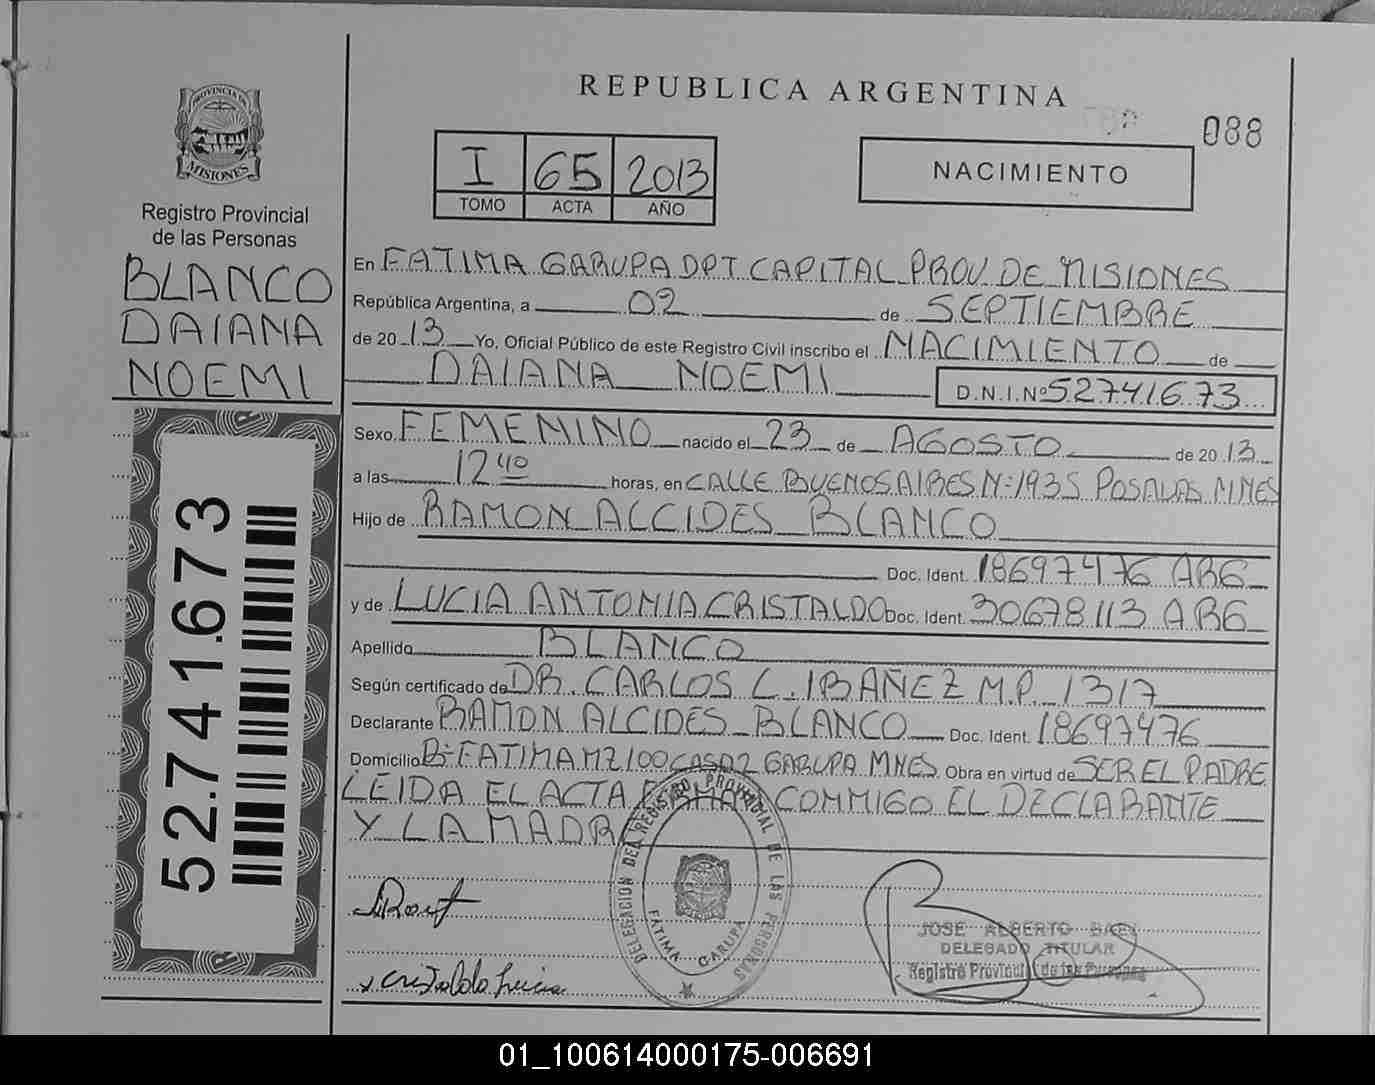 REPUBLICA ARGENTINA
088
PROVINCIA DE
MISIONES
Registro Provincial
de las Personas
BLANCO
DAIANA
NOEMI
52.741.673
I 65 2013
TOMO ACTA AÑO
NACIMIENTO
En FATIMA GARUPA DPT CAPITAL PROV. DE MISIONES
República Argentina, a 02 de SEPTIEMBRE
de 2013 Yo, Oficial Público de este Registro Civil inscribo el NACIMIENTO de
DAIANA NOEMI D.N.I.Nº 52741673
Sexo FEMENINO nacido el 23 de AGOSTO de 2013
a las 12 40 horas, en CALLE BUENOS AIRES Nº 1935 POSADAS MNES
Hijo de RAMON ALCIDES BLANCO
Doc. Ident. 18697476 ARG
y de LUCIA ANTONIA CRISTALDO Doc. Ident. 30678113 ARG
Apellido BLANCO
Según certificado de DR. CARLOS L. IBAÑEZ M.P. 1317
Declarante RAMON ALCIDES BLANCO Doc. Ident. 18697476
Domicilio Bº FATIMA MZ 100 CASA 2 GARUPA MNES Obra en virtud de SER EL PADRE
LEIDA EL ACTA FIRMAN CONMIGO EL DECLARANTE
Y LA MADR
DELEGACION DEL REGISTRO PROVINCIAL DE LAS PERSONAS
FATIMA GARUPA
JOSE ALBERTO BAEZ
DELEGADO TITULAR
Registro Provincial de las Personas
x Cristaldo Lucia
01_100614000175-006691